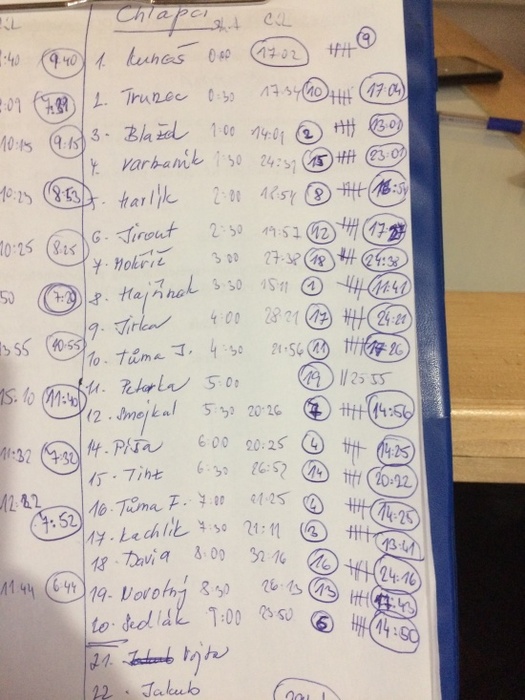 Chlapci Start Cíl
1. Lukáš 0:00 17:02 9
2. Trunec 0:30 17:34 10 17:04
3. Blažd 1:00 14:01 2 13:01
4. Varbaník 1:30 24:31 15 23:01
5. Harlík 2:00 18:54 8 16:54
6. Jirout 2:30 19:57 12 17:27
7. Mokříš 3:00 27:38 18 24:38
8. Hajšínek 3:30 15:11 1 11:41
9. Jirka 4:00 28:21 17 24:21
10. Tůma J. 4:30 21:56 11 17:26
11. Peterka 5:00 19 25:55
12. Smejkal 5:30 20:26 7 14:56
14. Píša 6:00 20:25 4 14:25
15. Tint 6:30 26:52 14 20:22
16. Tůma F. 7:00 21:25 4 14:25
17. Kachlík 7:30 21:11 3 13:41
18. David 8:00 32:16 16 24:16
19. Novotný 8:30 26:13 13 17:43
20. Sedlák 9:00 23:50 5 14:50
21. Vojta
22. Jakub
:40 9:40
:09 7:39
10:15 9:15
10:23 8:53
10:25 8:25
50 7:20
3:55 10:55
15:10 11:40
11:32 7:32
12:22 7:52
11:44 6:44